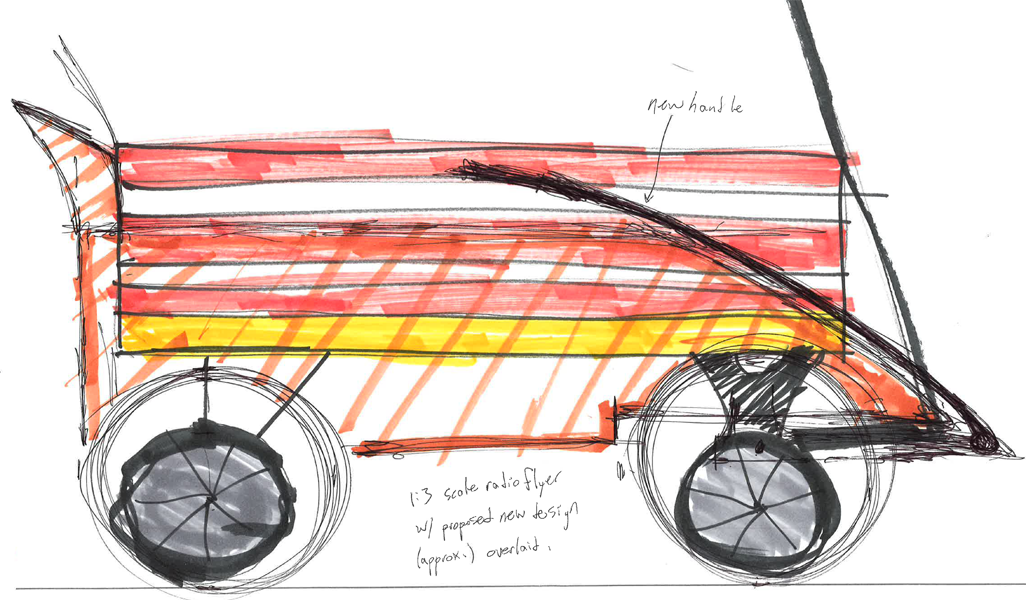 new handle
1:3 scale radio flyer
w/ proposed new design
(approx.) overlaid.